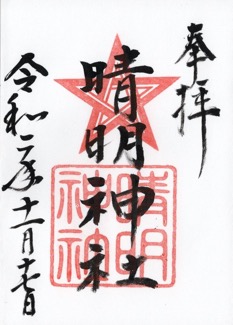 奉拝
晴明神社
晴明
神社
令和二年十一月十七日